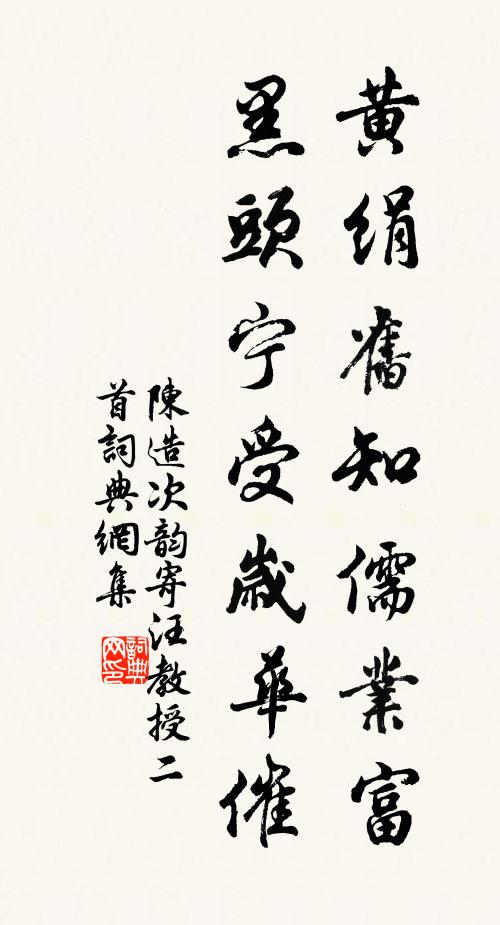 黃絹舊知儒業富
黑頭宁受歲華催
陳造次韵寄汪教授二
首詞典網集
詞典
网印